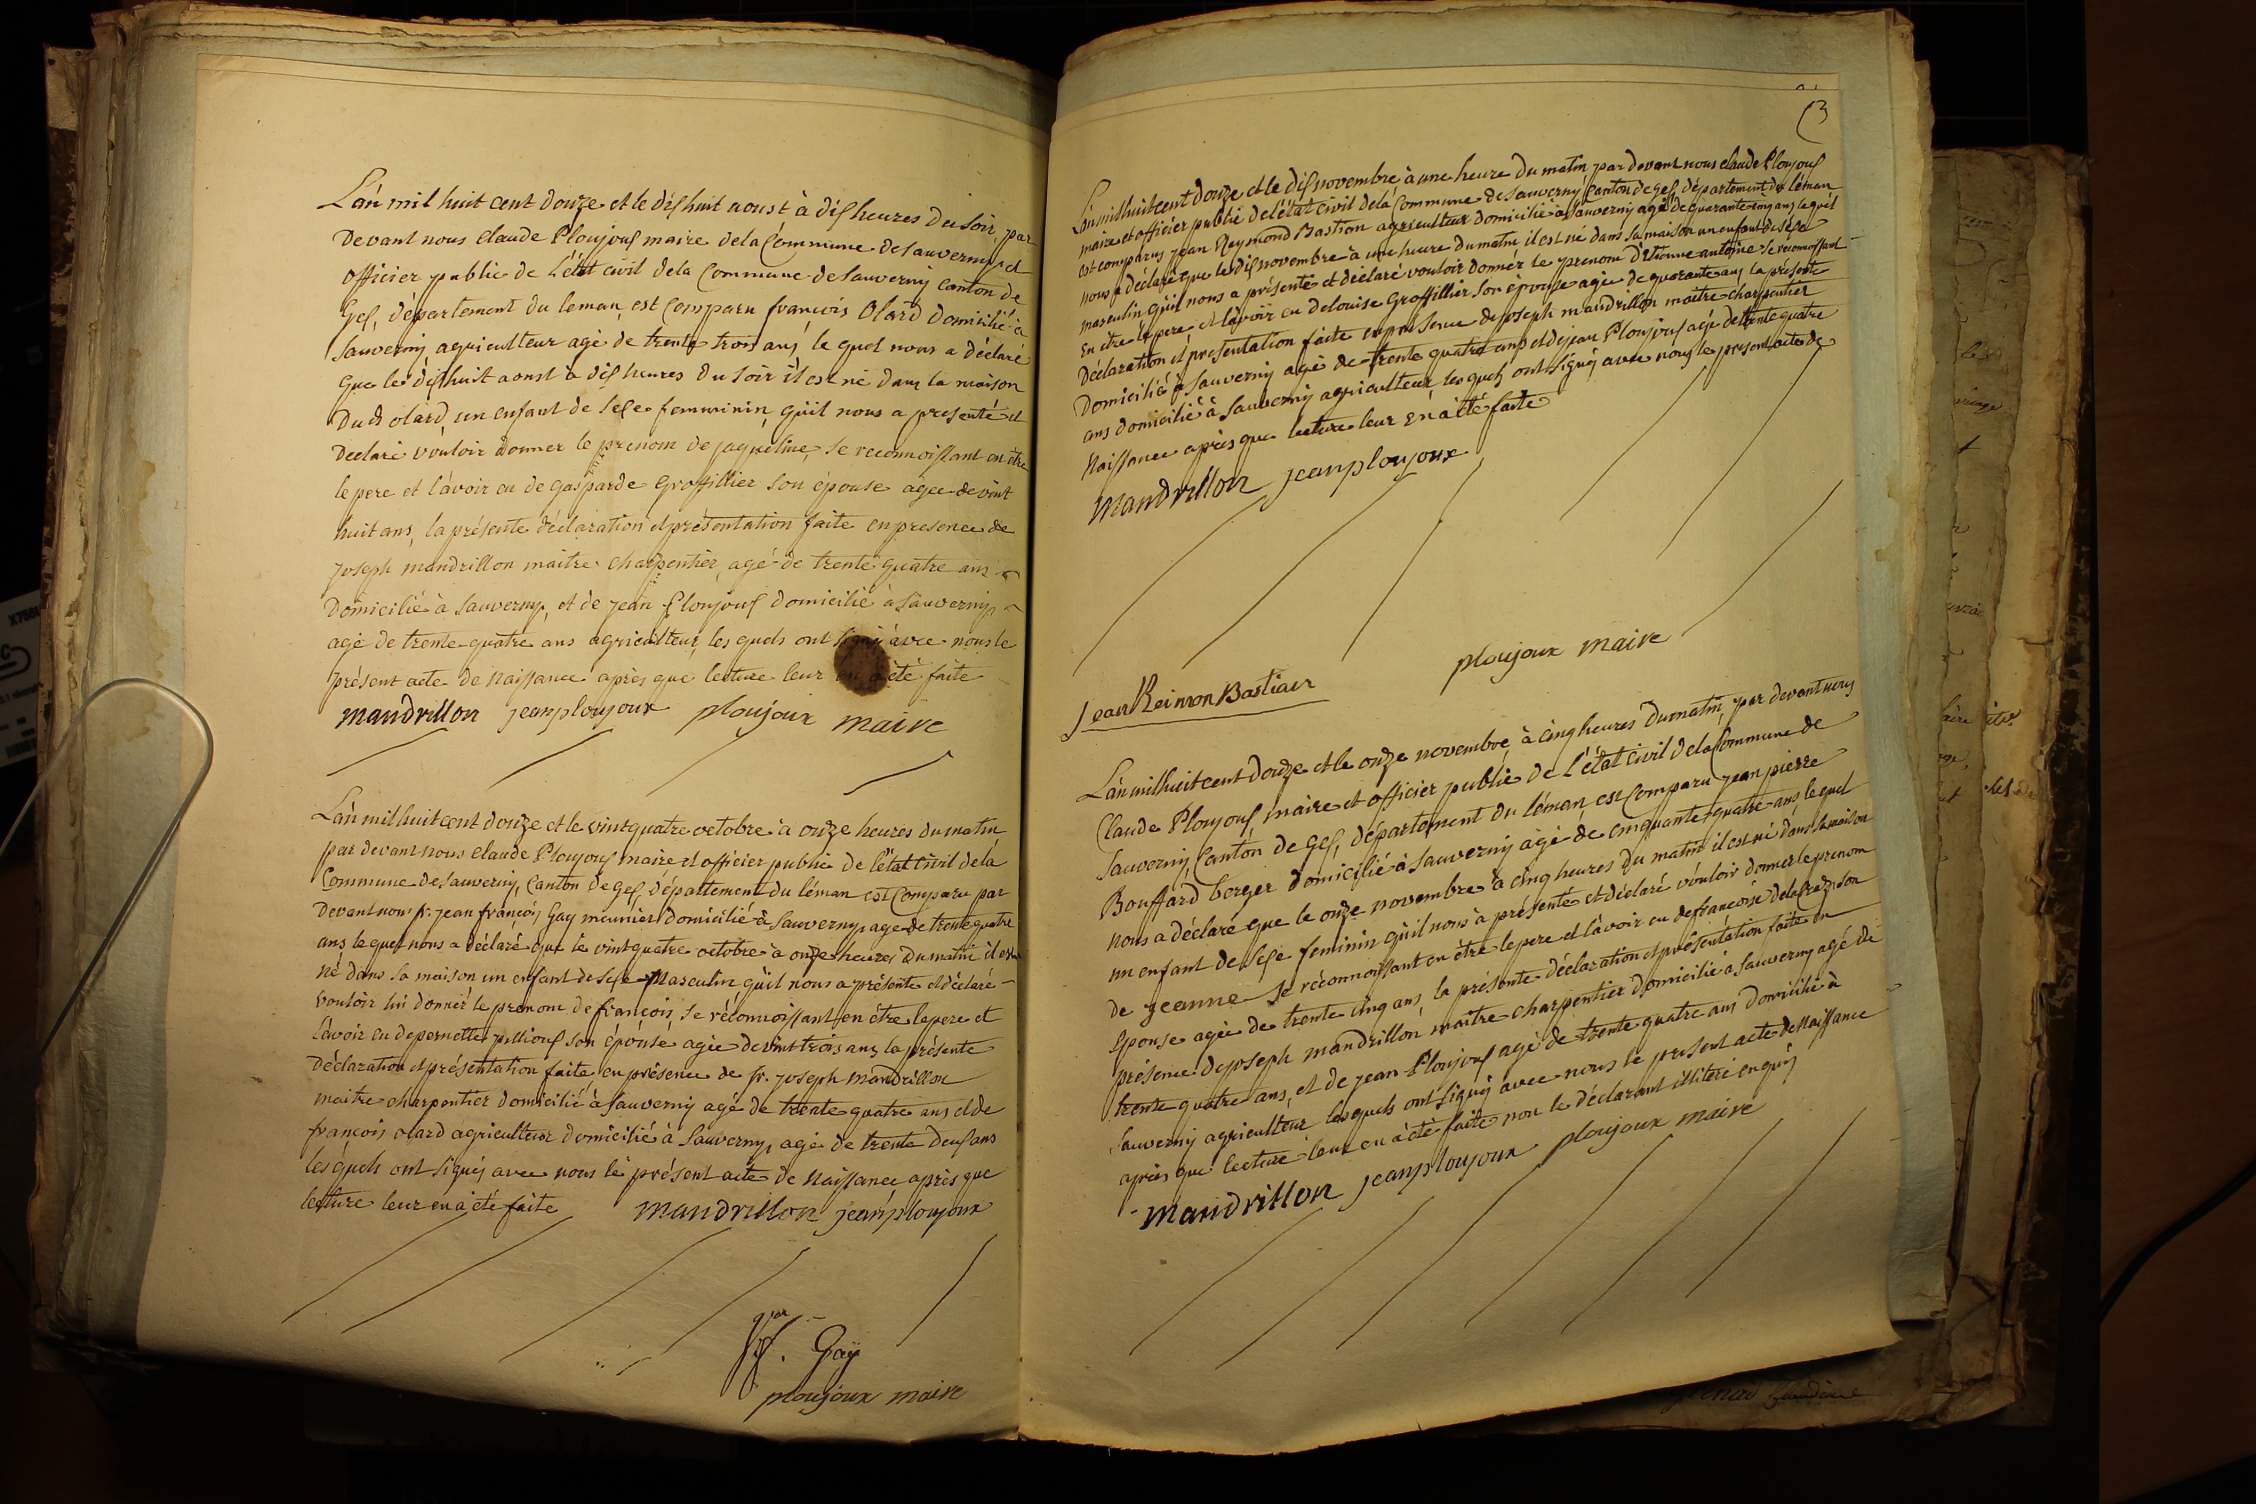 L'an mil huit cent douze et le dishuit aoust à dis heures du soir, par
devant nous claude Ploujoux maire de la Commune de sauverny et
officier public de L'état civil de la Commune de sauverny canton de
Gex, département du leman, est Comparu françois Olard domicilié à
sauverny agriculteur agé de trente trois ans, le quel nous a déclaré
que le dishuit aoust à dis heures du soir il est né dans la maison
dud olard, un enfant de sexe femminin qu'il nous a presenté et
declaré vouloir donner le prenom de jaqueline, se reconnoissant en être
le pere et l'avoir eu de gasparde Groffillier son épouse agée de vint
huit ans, la présente déclaration et présentation faite en presence de
joseph mandrillon maitre charpentier, agé de trente quatre ans
domicilié à sauverny, et de jean Ploujoux domicilié à sauverny
agé de trente quatre ans agriculteur, les quels ont signé avec nous le
présent acte de naissance après que lecture leur en a été faite
mandrillon jeanploujoux ploujoux maire
L'an mil huit cent douze et le vint quatre octobre à onze heures du matin
par devant nous claude Ploujoux maire et officier public de l'état civil de la
Commune de sauverny, Canton de gex, département du léman est Comparu par
devant nous fr. jean françois Gay meunier domicilié à sauverny, agé de trente quatre
ans le quel nous a déclaré que le vint quatre octobre à onze heures du matin il est
né dans sa maison un enfant de sexe masculin qu'il nous a présenté et déclaré
vouloir lui donner le prenom de françois, se réconnoissant en être le pere et
l'avoir eu de pernette pellioux son épouse agée de vint trois ans, la présente
déclaration et présentation faite en présence de fr. joseph Mandrillon
maitre charpentier domicilié à sauverny agé de trente quatre ans et de
françois olard agriculteur domicilié à sauverny, agé de trente deux ans
les quels ont signés avec nous le présent acte de naissance après que
lecture leur en a été faite mandrillon jeanploujoux
Gay
ploujoux maire
L'an mil huit cent douze et le dis novembre à une heure du matin par devant nous claude Ploujoux
maire et officier public de l'état civil de la Commune de sauverny Canton de gex, département du léman
est comparus jean Reymond Bastian agriculteur domicilié à sauverny agé de quarante cinq ans le quel
nous a déclaré que le dis novembre à une heure du matin il est né dans sa maison un enfant de sexe
masculin qu'il nous a présenté et déclaré vouloir donner le prenom d'etienne antoine se reconnoissant
en être le pere et l'avoir eu de louise Groffillier son épouse agée de quarante ans la présente
déclaration et présentation faite en presence de joseph mandrillon maitre charpentier
domicilié à sauverny agé de trente quatre ans et de jean Ploujoux agé de trente quatre
ans domicilié à sauverny agriculteur les quels ont signé avec nous le présent acte de
naissance après que lecture leur en a été faite
mandrillon jeanploujoux
ploujoux maire
Jean Reimon Bastian
L'an mil huit cent douze et le onze novembre, à cinq heures du matin, par devant nous
Claude Ploujoux maire et officier public de L'état civil de la Commune de
sauverny, Canton de gex, département du léman est Comparu jean pierre
Bouffard berger domicilié à sauverny agé de cinquante quatre ans le quel
nous a déclaré que le onze novembre à cinq heures du matin il est né dans sa maison
un enfant de sexe feminin qu'il nous à présenté et déclaré vouloir donner le prenom
de jeanne se réconnoissant en être le pere et l'avoir eu de françoise son
épouse agée de trente cinq ans, la présente déclaration et présentation faite en
présence de joseph mandrillon maitre charpentier domicilié à sauverny agé de
trente quatre ans, et de jean Ploujoux agé de trente quatre ans domicilié à
sauverny agriculteur les quels ont signés avec nous le présent acte de naissance
après que lecture leur en a été faite non le déclarant illiteré enquis
mandrillon jeanploujoux ploujoux maire